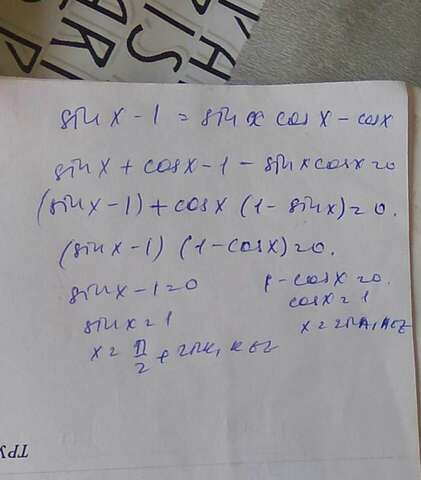 sin x - 1 = sin x cos x - cos x
sin x + cos x - 1 - sin x cos x = 0
(sin x - 1) + cos x (1 - sin x) = 0.
(sin x - 1) (1 - cos x) = 0.
sin x - 1 = 0 1 - cos x = 0.
sin x = 1 cos x = 1
x = π/2 + 2πk, k ∈ Z x = 2πn, n ∈ Z
ТРУ